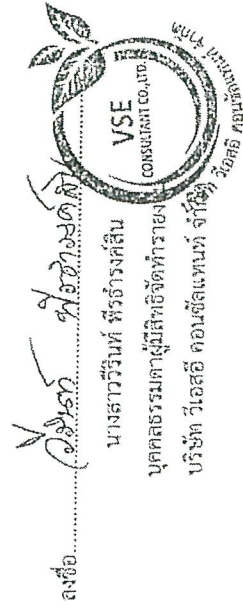 ลงชื่อ
นางสาววิรินท์ พีรธำรงค์สิน
บุคคลธรรมดาผู้มีสิทธิจัดทำรายงาน
บริษัท วีเอสอี คอนซัลแทนท์ จำกัด
VSE
CONSULTANT CO.,LTD.
บริษัท วีเอสอี คอนซัลแทนท์ จำกัด